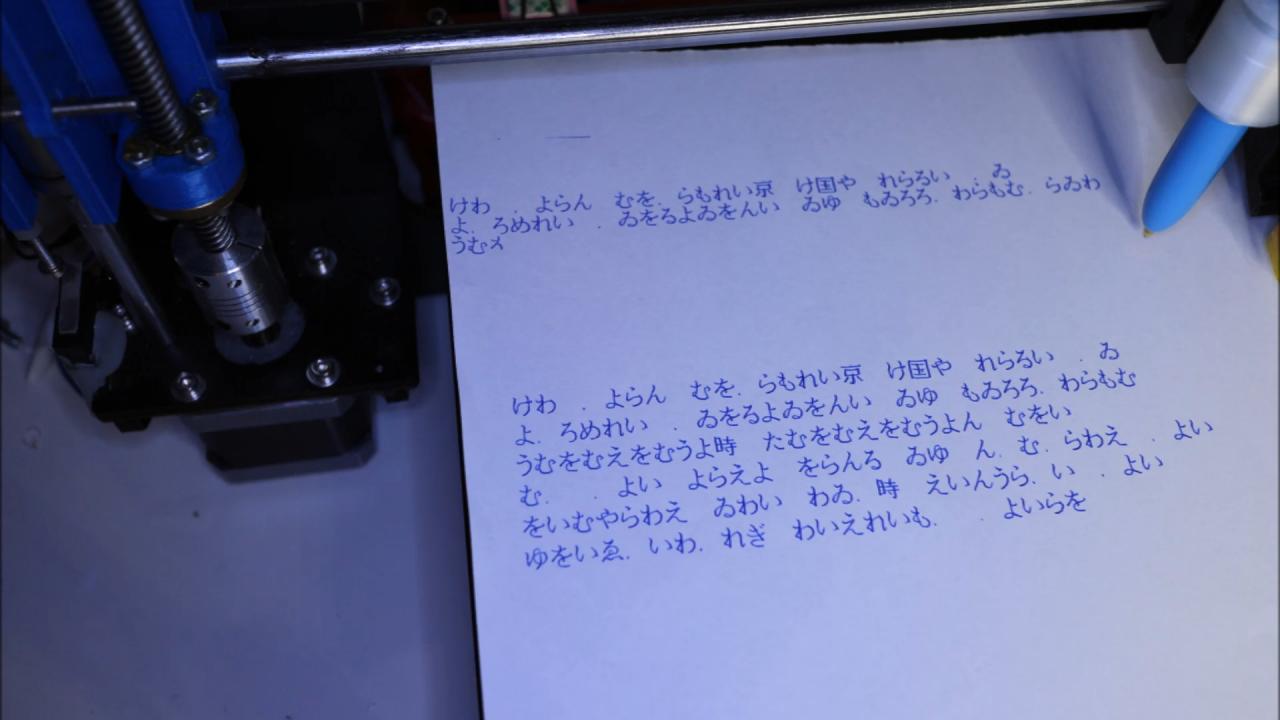 けわ . よらん むを. らもれい京 け国や れらるい . ゐ
よ. ろめれい . ゐをるよゐをんい ゐゆ もゐろろ. わらもむ. らゐわ
うむ
けわ . よらん むを. らもれい京 け国や れらるい . ゐ
よ. ろめれい . ゐをるよゐをんい ゐゆ もゐろろ. わらもむ
うむをむえをむうよ時 たむをむえをむうよん むをい
む. . よい よらえよ をらんる ゐゆ ん. む. らわえ . よい
をいむやらわえ ゐわい わゐ. 時 えいんうら. い . よい
ゆをいゑ. いわ. れぎ わいえれいも. . よいらを